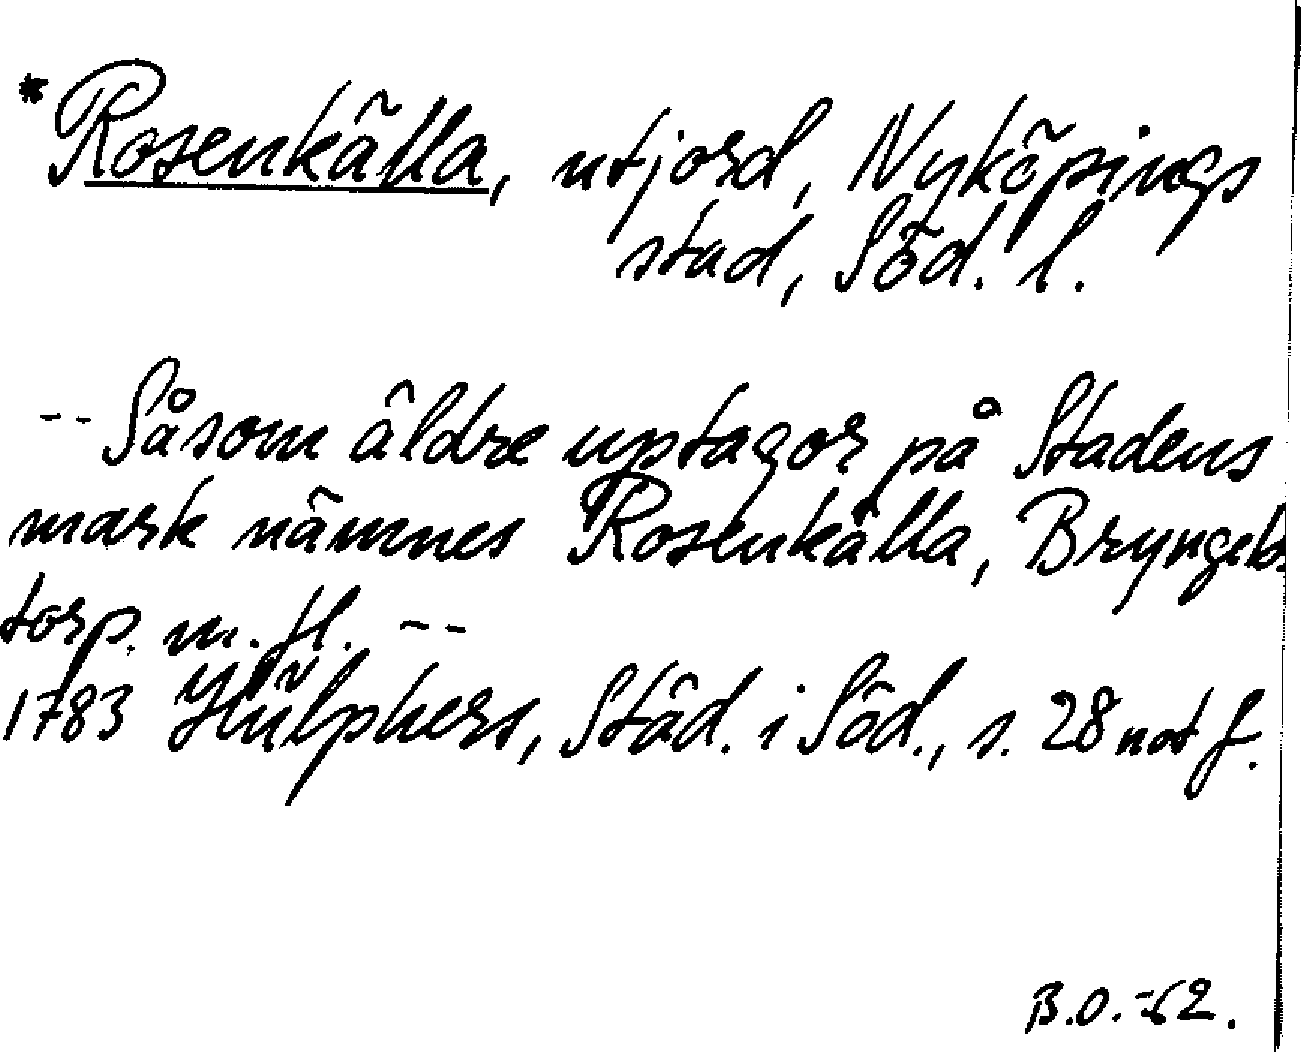 * Rosenkälla, utjord, Nyköpings
stad, Söd. l.
-- Såsom äldre uptagor på Stadens
mark nämnes Rosenkälla, Bryngels
torp. m. fl. --
1783 Hülphers, Städ. i Söd., s. 28 not f.
B.O. -62.